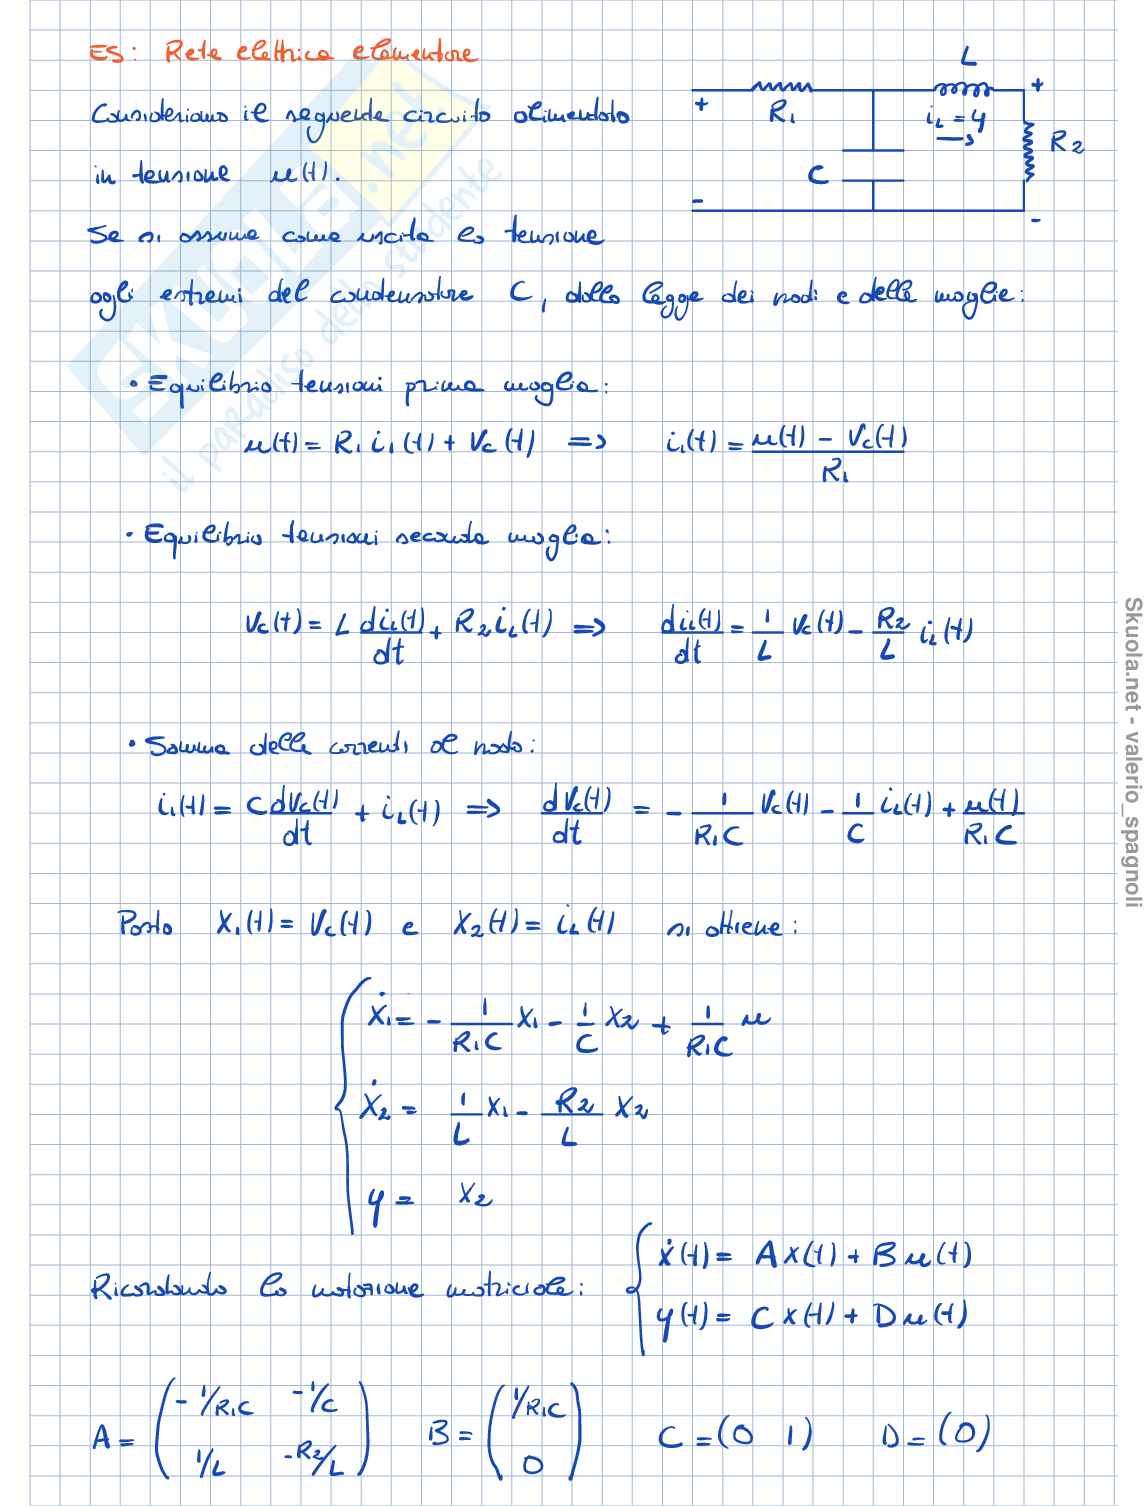 ES: Rete elettrica elementare
Consideriamo il seguente circuito alimentato
in tensione u(t).
Se si assume come uscita la tensione
agli estremi del condensatore C, dalla legge dei nodi e delle maglie:
+ R₁ L +
i_L = y
C R₂
- -
• Equilibrio tensioni prima maglia:
u(t) = R₁ i₁(t) + Vc(t) => i₁(t) = (u(t) - Vc(t)) / R₁
• Equilibrio tensioni seconda maglia:
Vc(t) = L di_L(t)/dt + R₂ i_L(t) => di_L(t)/dt = 1/L Vc(t) - R₂/L i_L(t)
• Somma delle correnti al nodo:
i₁(t) = C dVc(t)/dt + i_L(t) => dVc(t)/dt = - 1/(R₁C) Vc(t) - 1/C i_L(t) + u(t)/(R₁C)
Posto x₁(t) = Vc(t) e x₂(t) = i_L(t) si ottiene:
ẋ₁ = - 1/(R₁C) x₁ - 1/C x₂ + 1/(R₁C) u
ẋ₂ = 1/L x₁ - R₂/L x₂
y = x₂
Ricordando la notazione matriciale:
ẋ(t) = A x(t) + B u(t)
y(t) = C x(t) + D u(t)
A = ( -1/R₁C -1/C
1/L -R₂/L )
B = ( 1/R₁C
0 )
C = (0 1) D = (0)
SKUOLA.net
il paradiso dello studente
Skuola.net - valerio_spagnoli